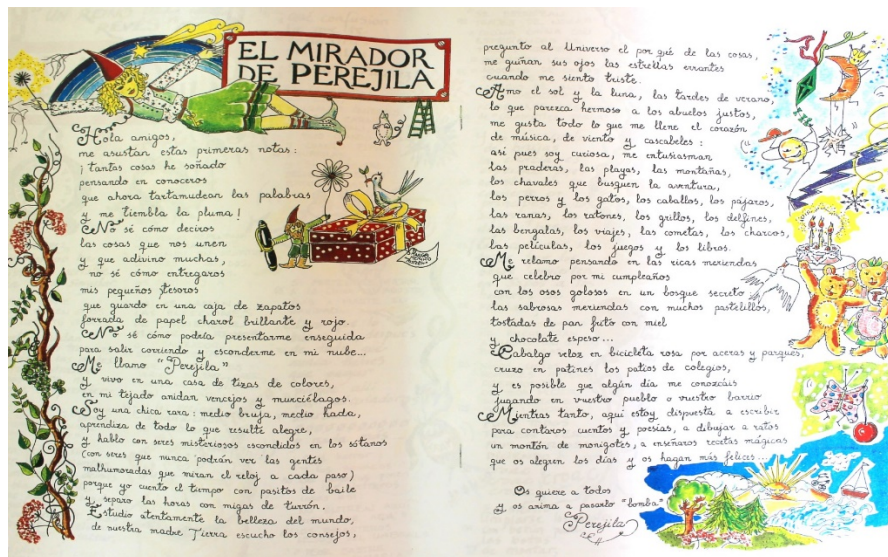 EL MIRADOR
DE PEREJILA
Hola amigos,
me asustan estas primeras notas:
¡tantas cosas he soñado
pensando en conoceros
que ahora tartamudean las palabras
y me tiembla la pluma!
No sé cómo deciros
las cosas que nos unen
y que adivino muchas,
no sé cómo entregaros
mis pequeños tesoros
que guardo en una caja de zapatos
forrada de papel charol brillante y rojo.
No sé cómo podría presentarme enseguida
para salir corriendo y esconderme en mi nube...
Me llamo "Perejila"
y vivo en una casa de tizas de colores,
en mi tejado anidan vencejos y murciélagos.
Soy una chica rara: medio bruja, medio hada,
aprendiza de todo lo que resulte alegre,
y hablo con seres misteriosos escondidos en los sótanos
(con seres que nunca podrán ver las gentes
malhumoradas que miran el reloj a cada paso)
porque yo cuento el tiempo con pasitos de baile
y separo las horas con migas de turrón.
Estudio atentamente la belleza del mundo,
de nuestra madre Tierra escucho los consejos,
pregunto al Universo el por qué de las cosas,
me guiñan sus ojos las estrellas errantes
cuando me siento triste.
Amo el sol y la luna, las tardes de verano,
lo que parezca hermoso a los abuelos justos,
me gusta todo lo que me llene el corazón
de música, de viento y cascabeles:
así pues soy curiosa, me entusiasman
las praderas, las playas, las montañas,
los chavales que busquen la aventura,
los perros y los gatos, los caballos, los pájaros,
las ranas, los ratones, los grillos, los delfines,
las bengalas, los viajes, las cometas, los charcos,
las películas, los juegos y los libros.
Me relamo pensando en las ricas meriendas
que celebro por mi cumpleaños
con los osos golosos en un bosque secreto
las sabrosas meriendas con muchos pastelillos,
tostadas de pan frito con miel
y chocolate espeso...
Cabalgo veloz en bicicleta rosa por aceras y parques,
cruzo en patines los patios de colegios,
y es posible que algún día me conozcáis
jugando en vuestro pueblo o vuestro barrio
Mientras tanto, aquí estoy dispuesta a escribir
para contaros cuentos y poesías, a dibujar a ratos
un montón de monigotes, a enseñaros recetas mágicas
que os alegren los días y os hagan más felices...
Os quiere a todos
y os anima a pasarlo "bomba"
Perejila